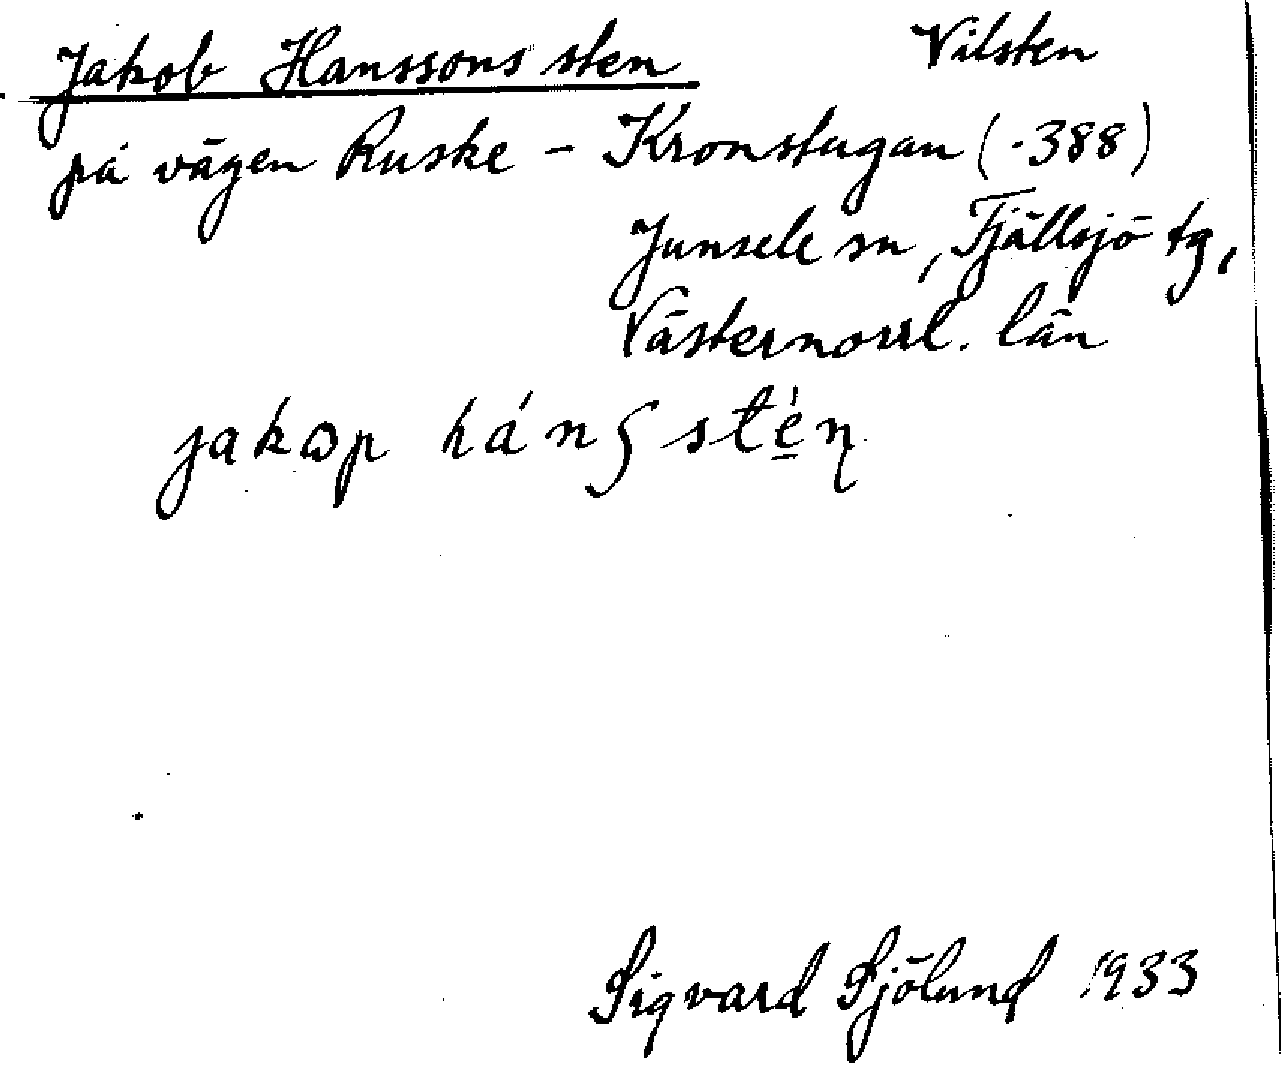 Jakob Hanssons sten Vilsten
på vägen Ruske - Kronstugan (·388)
Junsele sn, Fjällsjö tg,
Västernorrl. län
jakɷp hánʃ stḗn̥
Sigvard Sjölund 1933